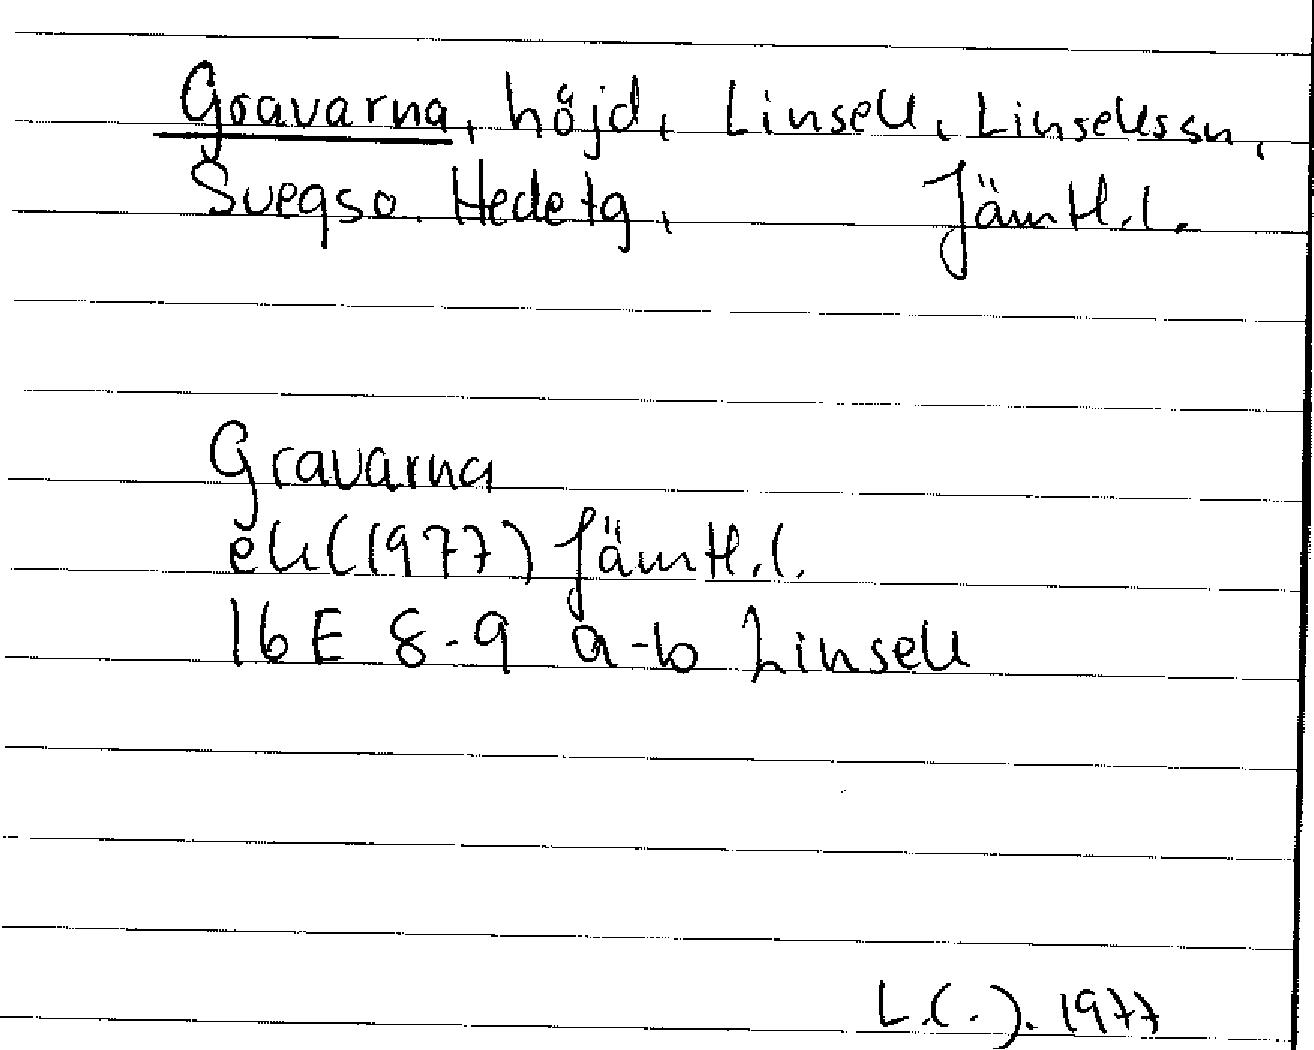 Gravarna, höjd, Linsell, Linsellssn,
Svegso. Hede tg, Jämtl.l.
Gravarna
ek (1977) Jämtl.l.
16E 8-9 a-b Linsell
L.(.). 1977